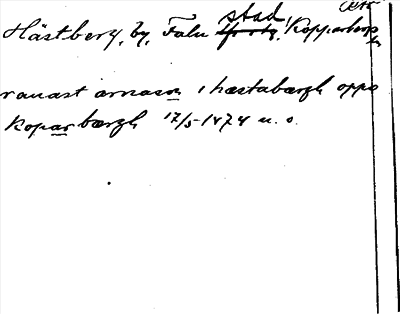 Hästberg, by, Falu stad, Kopparbergs
ravast arnason i hæstabærgh oppo
kopar bærgh 17/5 1474 u. o.